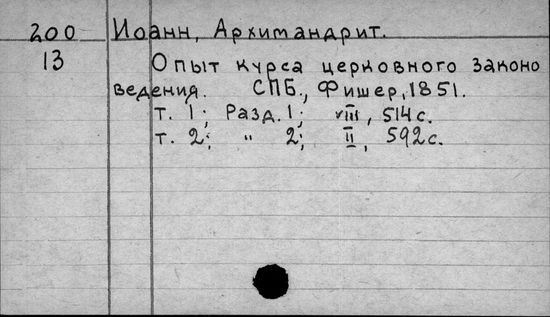 200 Иоанн, Архимандрит.
13 Опыт курса церковного законо
ведения. СПБ., Фишер, 1851.
т. 1; Разд. 1; VIII, 514 с.
т. 2; " 2; II, 592 с.